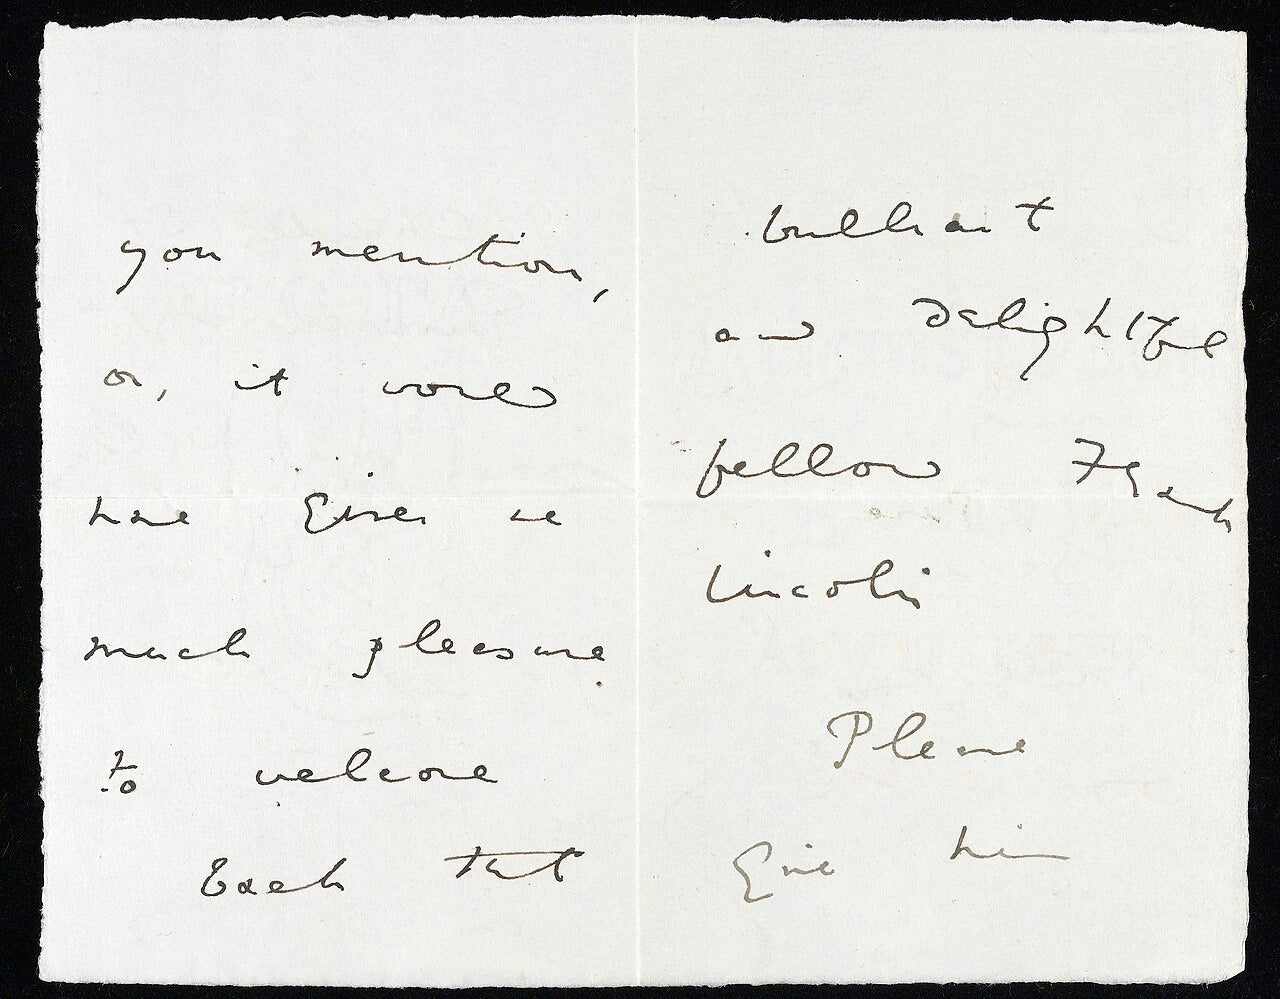 you mention,
or, it would
have given me
much pleasure
to welcome
back that
brilliant
and delightful
fellow Frank
Lincoln
Please
Give him